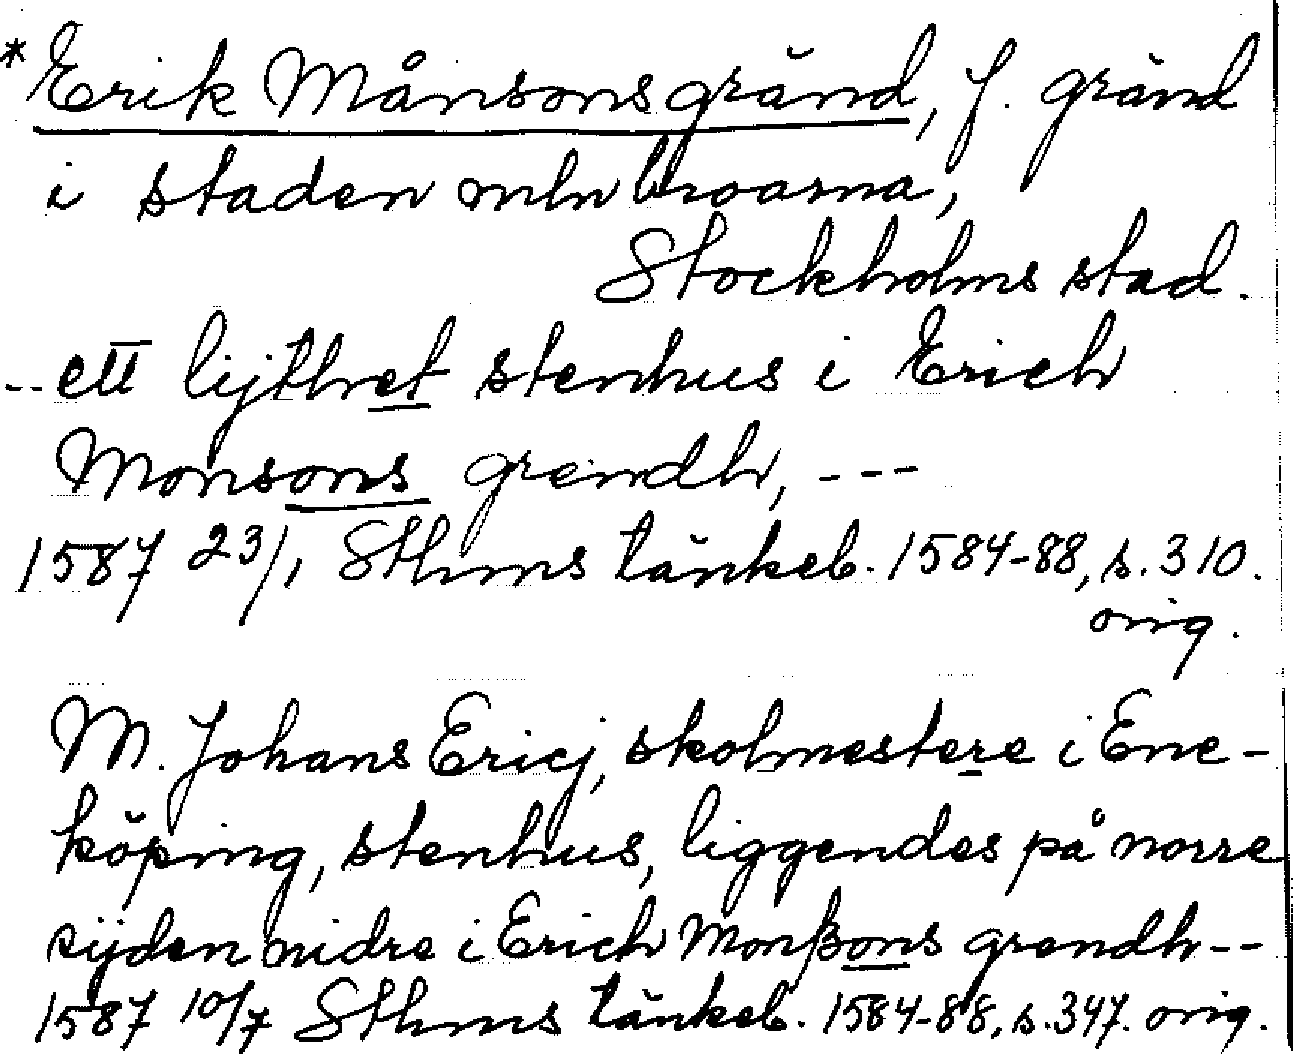 * Erik Månsons gränd, f. gränd
i staden mln broarna,
Stockholms stad.
-- ett lijthet stenhus i Erich
Monsons grendh, ---
1587 23/1, Sthms tänkeb. 1584-88, s. 310.
orig.
M. Johans Ericj, skolmestere i Ene-
köping, stenhus, liggendes på norre
sijden nidre i Erich Monßons grendh --
1587 10/7 Sthms tänkeb. 1584-88, s. 347. orig.